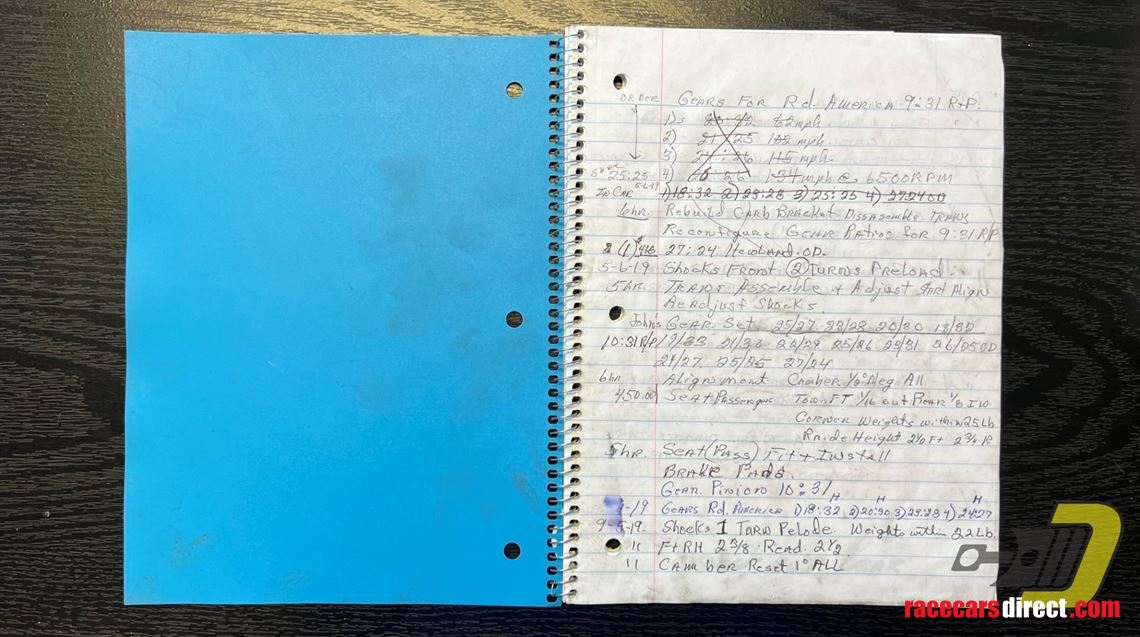 ORDER GEARS FOR Rd. AMERICA 9:31 R+P.
1)s mph
2) 25 102 mph.
3) 115 mph.
25:25 4) mph @ 6500RPM
IN CAR 5-6-19 1) 18:32 2) 28:28 3) 25:25 4)
6hr. Rebuild CARB BRACKET DISSASEMBLE TRANS
Reconfigure GEAR RATIOS FOR 9:31 R/P
27:24 Hewland. OD.
5-6-19 SHOCKS FRONT 2 TURNS PRELOAD.
5hr. TRANS ASSEMBLE + Adjust START Align
ReAdjust SHOCKS.
John's GEAR SET 28/28 20/30 18/32
10:31 R/P 25/26 26/25 OD
25/25 27/24
6hr. Alignment CAMBER 1/2° Neg All
450.00 SEAT Passenger FT 1/16 out REAR 1/8 IN.
CORNER WEIGHTS within 25 Lb
Raide Height 2 3/4 R
5hr. SEAT (PASS) FIT + INSTALL
BRAKE PADS.
GEAR PINION 10:31
H H H
-19 GEARS Rd. AMERICA 1) 18:32 2) 20:30 3) 25:28 4) 24:27
9-5-19. SHOCKS 1 TURN Pelode. Weights within 22 Lb.
" Ft RH 2 3/8 · Read. 2 1/2
" CAMBER Reset 1° ALL
racecarsdirect.com